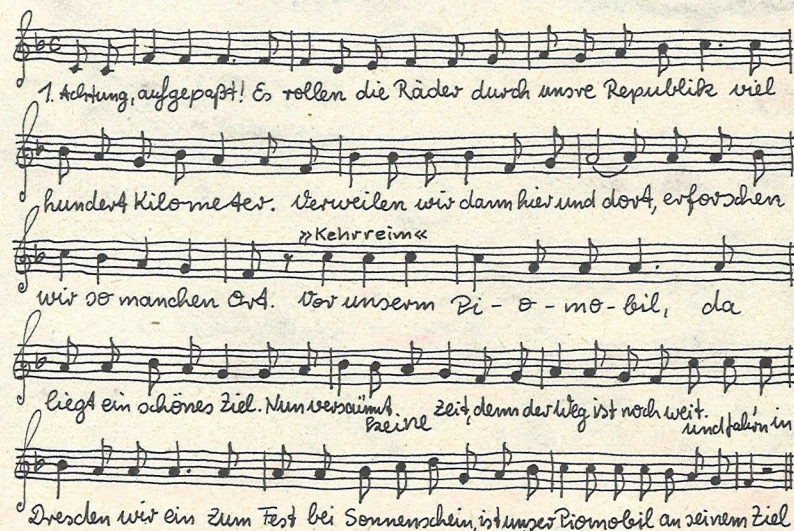 1. Achtung, aufgepaßt! Es rollen die Räder durch unsre Republik viel
hundert Kilometer. Verweilen wir dann hier und dort, erforschen
»Kehrreim«
wir so manchen Ort. Vor unserm Pi - o - mo - bil, da
liegt ein schönes Ziel. Nun versäumt keine Zeit, denn der Weg ist noch weit. und fahr'n in
Dresden wir ein zum Fest bei Sonnenschein, ist unser Piomobil an seinem Ziel